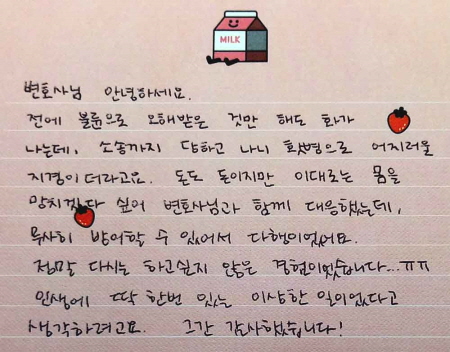 MILK
변호사님 안녕하세요.
전에 불륜으로 오해받은 것만 해도 화가
나는데, 소송까지 당하고 나니 홧병으로 어지러울
지경이더라고요. 돈도 돈이지만 이대로는 몸을
망치겠다 싶어 변호사님과 함께 대응했는데,
무사히 방어할 수 있어서 다행이었어요.
정말 다시는 하고싶지 않은 경험이었습니다...ㅠㅠ
인생에 딱 한번 있는 이상한 일이었다고
생각하려고요. 그간 감사했습니다!